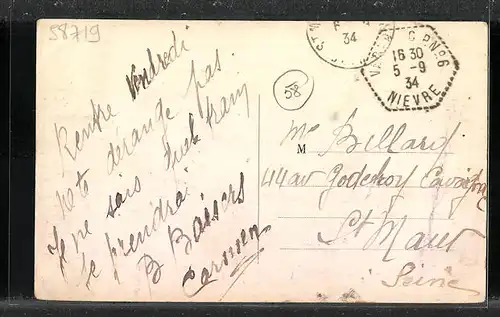 58719
Rentre Vendredi
ne te dérange pas.
Je ne sais quel tram
je prendrai
B Baisers
Carmen
58
34
G.P.Nº 6
16 30
5 - 9
34
NIEVRE
M
Mr Billard
44 av Godefroy Cavaignac
St Maur
Seine